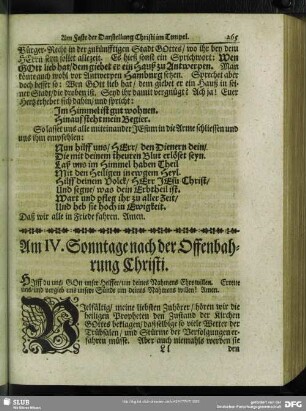 Am Feste der Darstellung Christi im Tempel. 265
Bürger-Recht in der zukünfftigen Stadt GOttes/ wo ihr bey dem
HErrn seyn sollet allezeit. Es hieß sonst ein Sprichwort: Wen
GOtt lieb hat/ dem giebet er ein Hauß zu Antwerpen. Man
könte auch wohl vor Antwerpen Hamburg setzen. Sprechet aber
doch besser so: Wen GOtt lieb hat/ dem giebet er ein Hauß in sei-
ner Stadt/ die droben ist. Seyd ihr damit vergnügt? Ach ja! Euer
Hertz erhebet sich dahin/ und spricht:
Im Himmel ist gut wohnen.
Hinauf steht mein Begier.
So lasset uns alle mit einander JEsum in die Arme schliessen und
uns ihm empfehlen:
Nun hilff uns/ HErr/ den Dienern dein/
Die mit deinem theuren Blut erlöset seyn.
Laß uns im Himmel haben Theil
Mit den Heiligen in ewgem Heyl.
Hilff deinem Volck/ HErr JEsu Christ/
Und segne/ was dein Erbtheil ist.
Wart und pfleg ihr zu aller Zeit/
Und heb sie hoch in Ewigkeit.
Daß wir alle in Friede fahren. Amen.
Am IV. Sonntage nach der Offenbah-
rung Christi.
Hilff du uns GOtt unser Helffer/ um deines Nahmens Ehre willen. Errette
uns/ und vergieb uns unser Sünde um deines Nahmens willen! Amen.
Vielfältig/ meine liebsten Zuhörer/ hören wir die
heiligen Propheten den Zustand der Kirchen
GOttes beklagen/ daß selbige so viele Wetter der
Trübsalen/ und Stürme der Verfolgungen er-
fahren müsse. Aber auch niemahls werden sie
Ll den
SLUB
Wir führen Wissen.
DFG